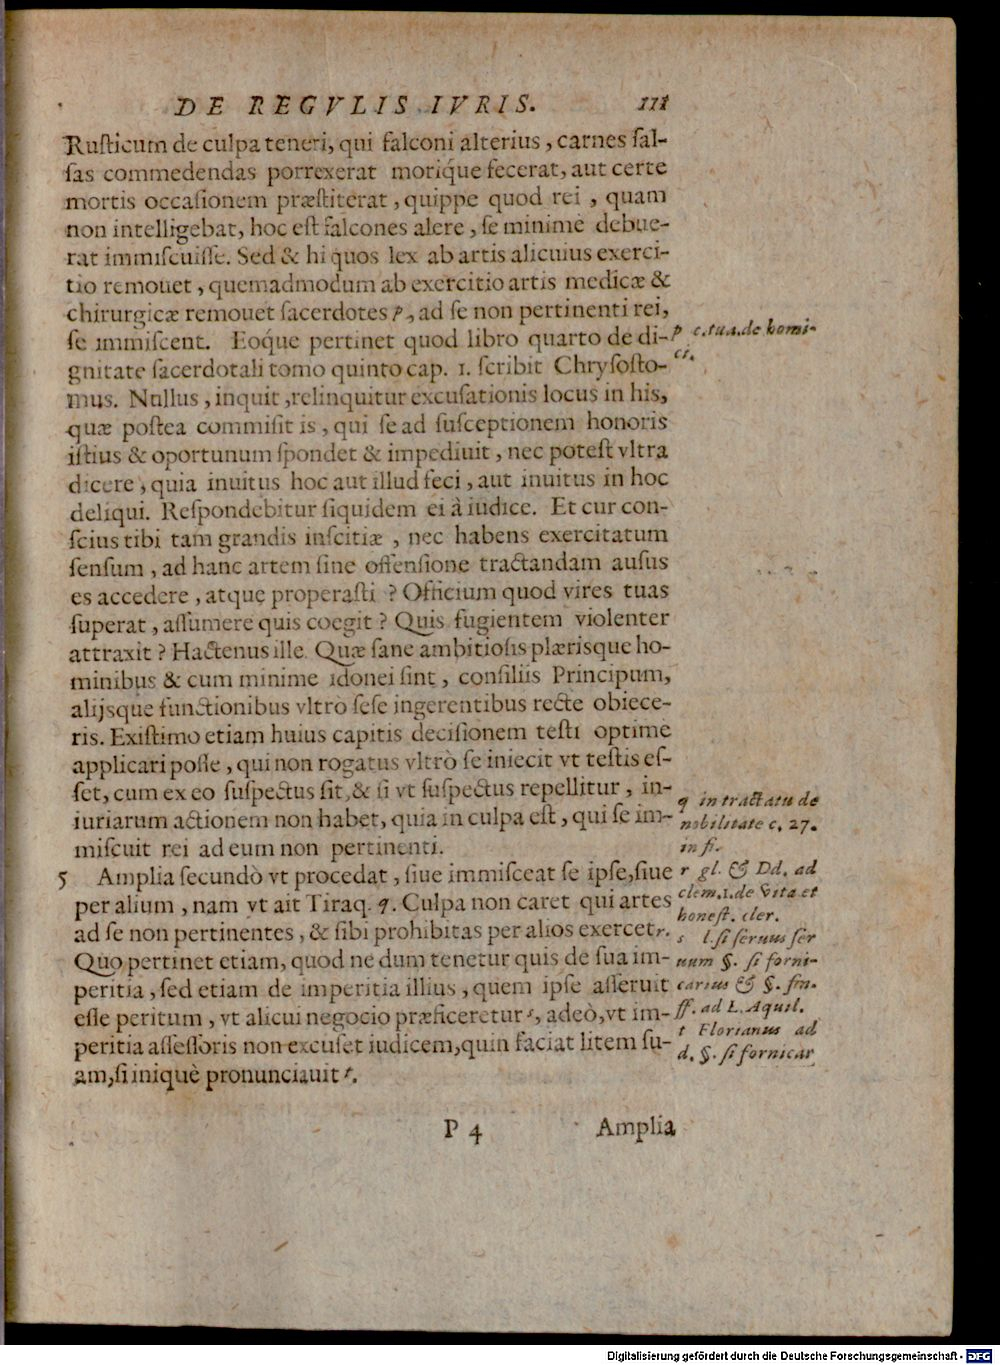 DE REGVLIS IVRIS. 111
Rusticum de culpa teneri, qui falconi alterius, carnes sal-
sas commedendas porrexerat moriq́ue fecerat, aut certe
mortis occasionem præstiterat, quippe quod rei, quam
non intelligebat, hoc est falcones alere, se minimè debue-
rat immiscuisse. Sed & hi quos lex ab artis alicuius exerci-
tio remouet, quemadmodum ab exercitio artis medicæ &
chirurgicæ remouet sacerdotes p, ad se non pertinenti rei,
se immiscent. Eoq́ue pertinet quod libro quarto de di-
gnitate sacerdotali tomo quinto cap. 1. scribit Chrysosto-
mus. Nullus, inquit, relinquitur excusationis locus in his,
quæ postea commisit is, qui se ad susceptionem honoris
istius & oportunum spondet & impediuit, nec potest vltra
dicere, quia inuitus hoc aut illud feci, aut inuitus in hoc
deliqui. Respondebitur siquidem ei à iudice. Et cur con-
scius tibi tam grandis inscitiæ, nec habens exercitatum
sensum, ad hanc artem sine offensione tractandam ausus
es accedere, atque properasti? Officium quod vires tuas
superat, assumere quis coegit? Quis fugientem violenter
attraxit? Hactenus ille. Quæ sane ambitiosis plærisque ho-
minibus & cum minime idonei sint, consiliis Principum,
alijsque functionibus vltro sese ingerentibus recte obiece-
ris. Existimo etiam huius capitis decisionem testi optime
applicari posse, qui non rogatus vltrò se iniecit vt testis es-
set, cum ex eo suspectus sit, & si vt suspectus repellitur, in-
iuriarum actionem non habet, quia in culpa est, qui se im-
miscuit rei ad eum non pertinenti.
5 Amplia secundò vt procedat, siue immisceat se ipse, siue
per alium, nam vt ait Tiraq. q. Culpa non caret qui artes
ad se non pertinentes, & sibi prohibitas per alios exercet r.
Quo pertinet etiam, quod ne dum tenetur quis de sua im-
peritia, sed etiam de imperitia illius, quem ipse asseruit
esse peritum, vt alicui negocio præficeretur s, adeò, vt im-
peritia assessoris non excuset iudicem, quin faciat litem su-
am, si iniquè pronunciauit t.
p c. tua. de homi-
ci.
q in tractatu de
nobilitate c. 27.
in fi.
r gl. & Dd. ad
clem. 1. de vita et
honest. cler.
s l. si seruus ser
uum §. si forni-
carius & §. fin.
ff. ad L. Aquil.
t Florianus ad
d. §. si fornicar
P 4 Amplia
Digitalisierung gefördert durch die Deutsche Forschungsgemeinschaft - DFG